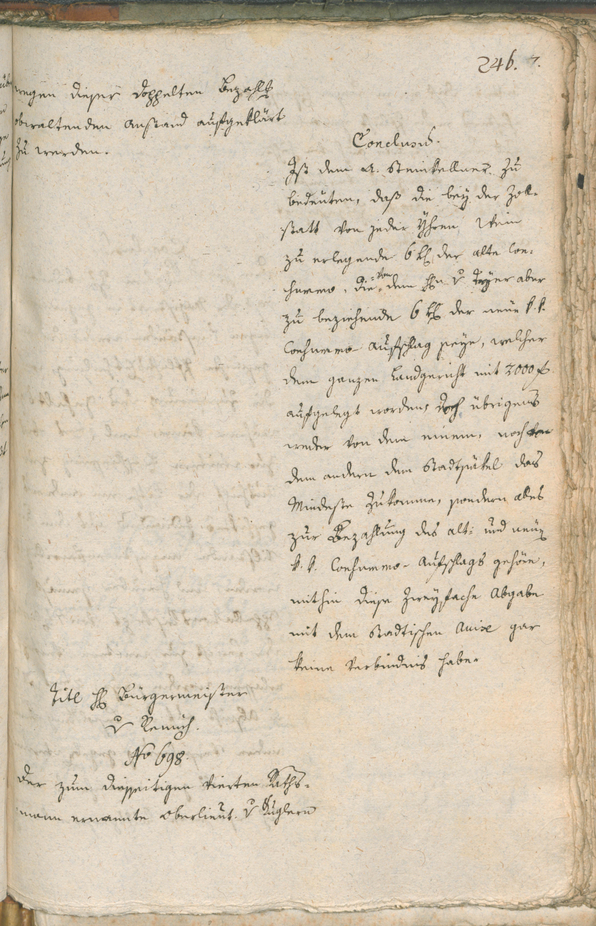 246. 7.
wegen dieser doppelten Bezahlg
obwaltenden Anstand aufgeklärt
zu werden.
Conclusum.
Ist dem A. Steinkellner zu
bedeuten, daß die bey der Zoll-
statt von jeder Yhren Wein
zu erlegende 6 kr der alte Con-
summo, die von dem Hn v aber
zu beziehende 6 kr der neue k. k.
Consummo Aufschlag seye, welcher
dem ganzen Landgericht mit 3000 f
aufgelegt worden, doch übrigens
weder von dem einem, noch von
dem andern dem Stadtsäkel das
Mindeste zukomme, sondern alles
zur Bezahlung des alt: und neüen
k. k. Consummo-Aufschlags gehöre,
mithin diese zweyfache Abgabe
mit dem Stadtischen gar
keine Verbindnis habe.
Titl H Bürgermeister
v Remich.
No 698.
Der zum diesseitigen vierten Raths-
mann ernannte Oberlieut. v